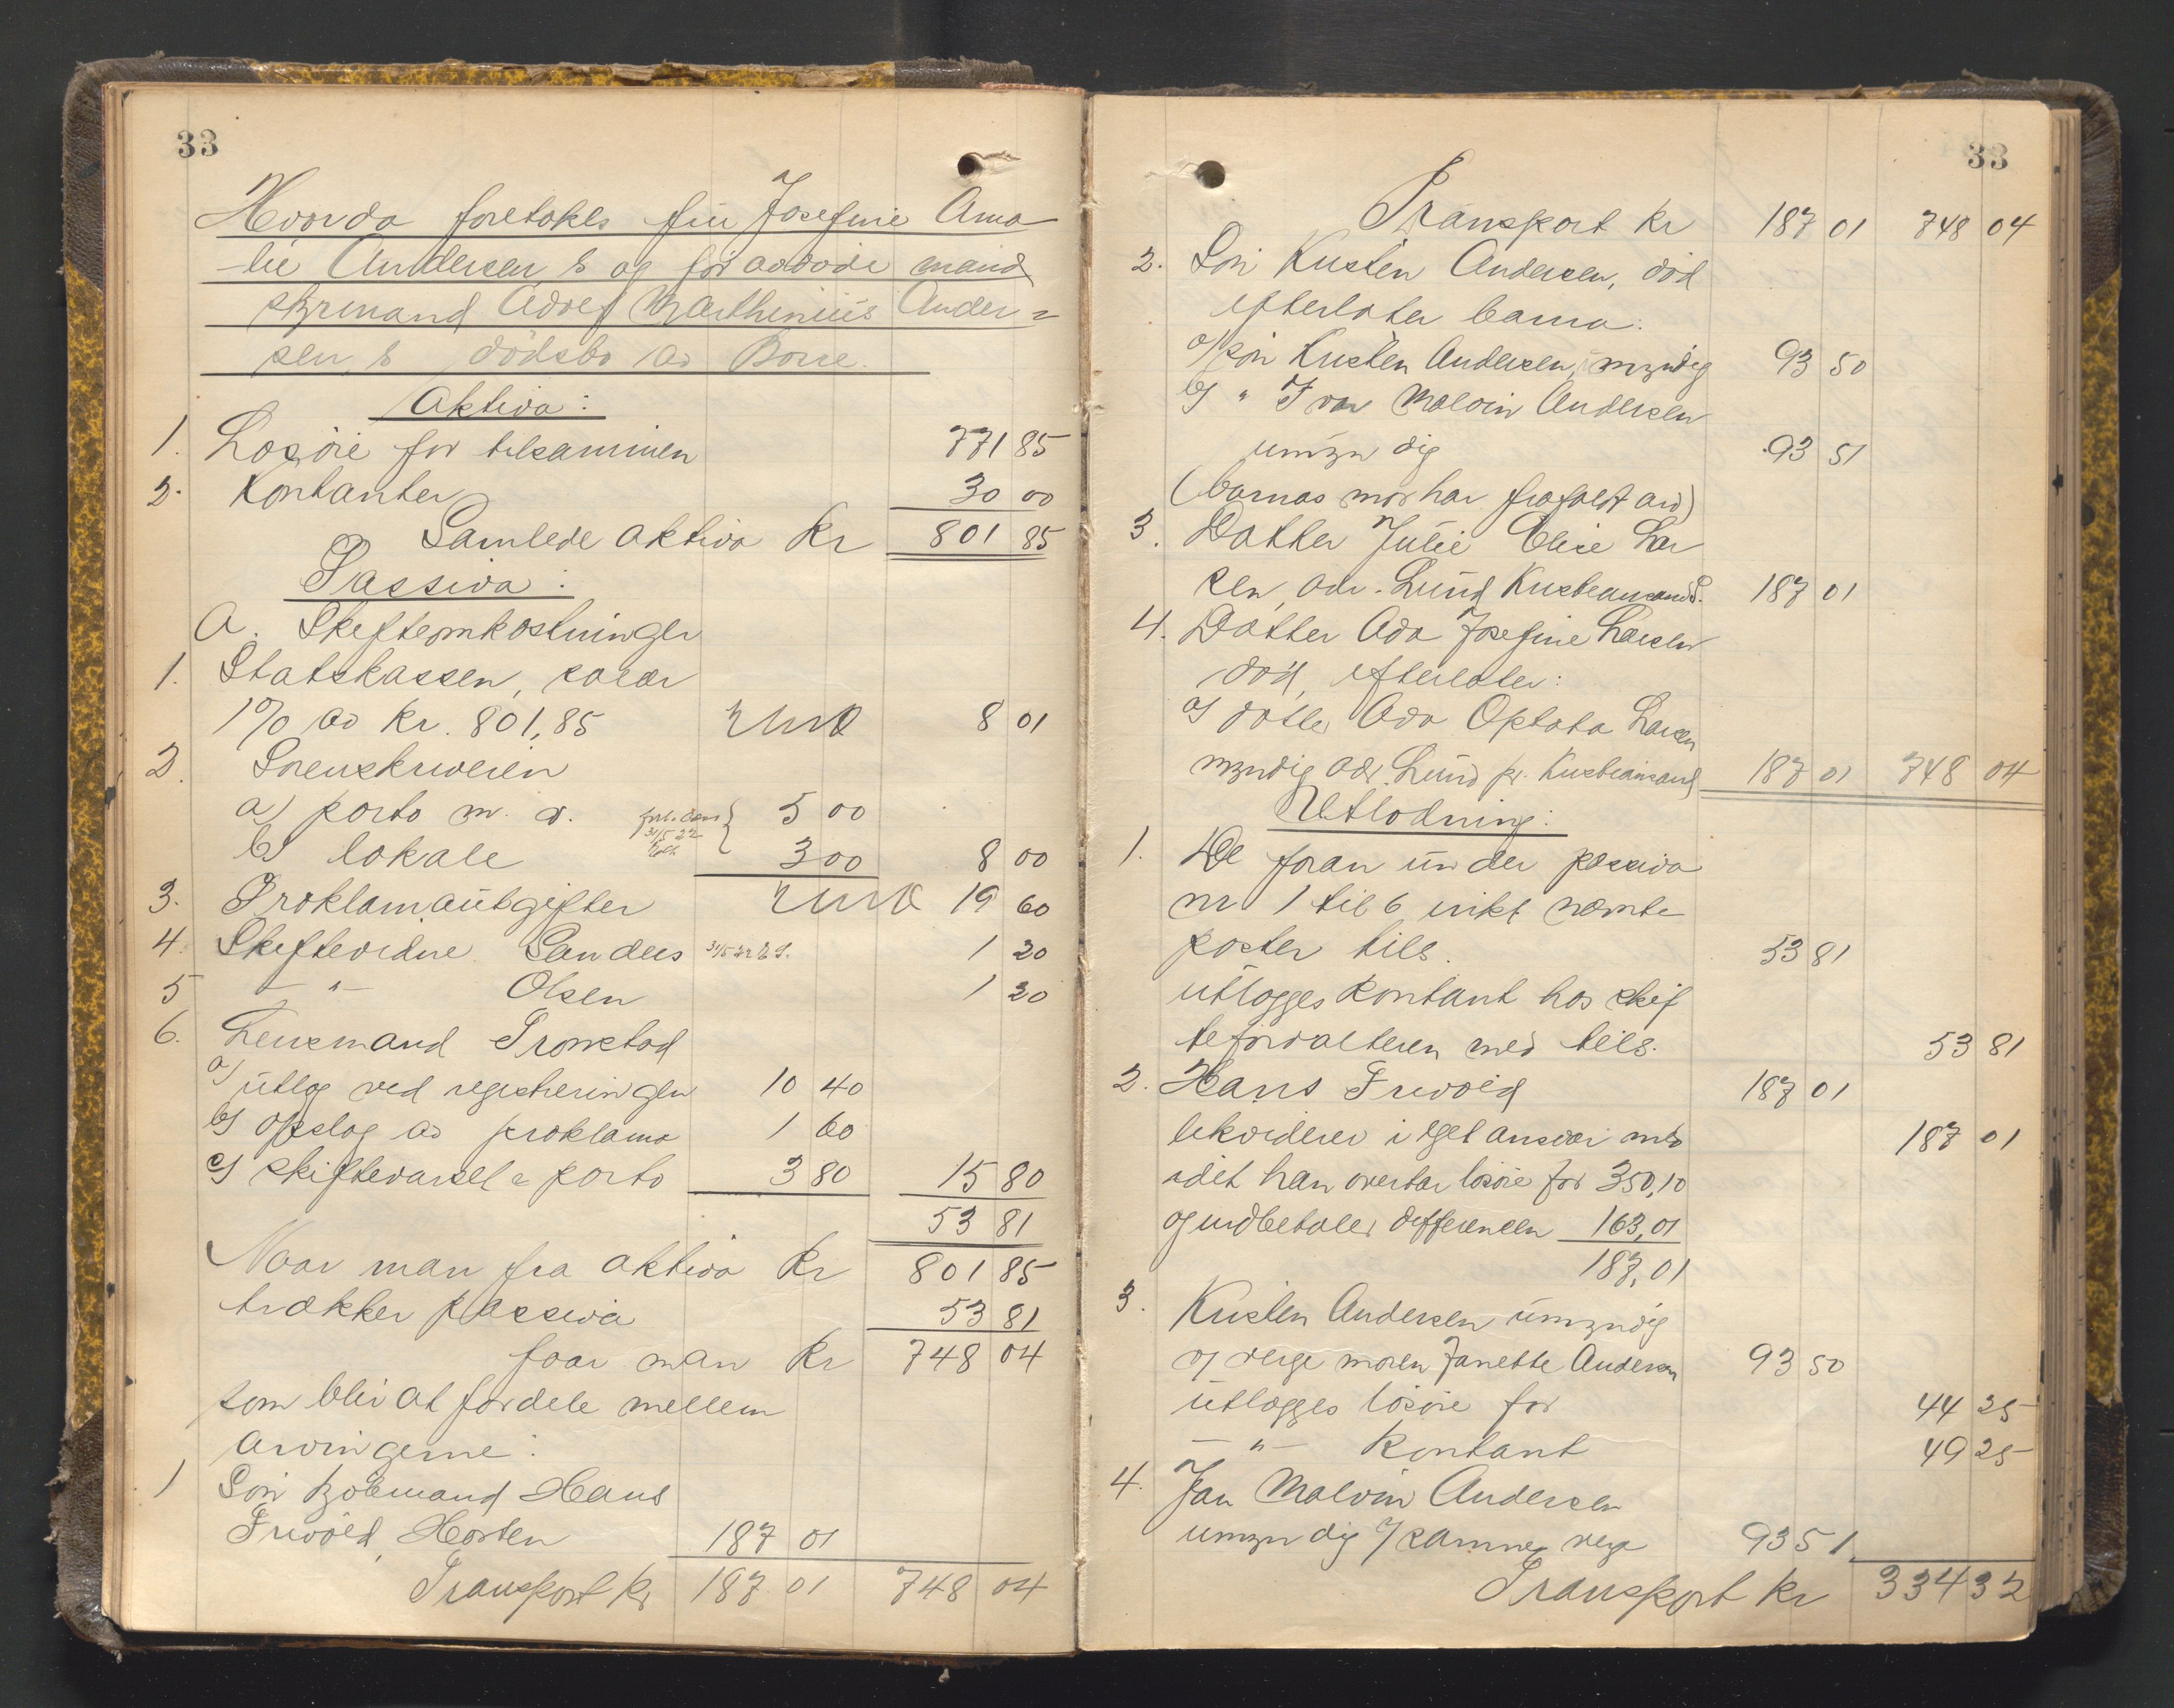 33
Hvorda foretokes fru Josefine Ama-
lie Andersen's og før avdøde mand
styrmand Adolf Marthinius Ander=
sen's dødsbo av Borre.
Aktiva:
1. Løsøre for tilsammen 771 85
2. Kontanter 30 00
Samlede aktiva Kr 801 85
Passiva:
A. Skifteomkostninger
1. Statskassen, salær
1% av kr. 801,85 8 01
2. Sorenskriveren
a) porto m. v. 5 00
31/5 22
b) lokale 3 00 8 00
3. Proklamautgifter 19 60
4. Skiftevidne Sanders 31/5 22 1 20
5 - " - Olsen 1 20
6. Lensmand Tronstad
a) utlæg ved registreringen 10 40
b) opslag av proklama 1 60
c) skiftevarsel & porto 3 80 15 80
53 81
Naar man fra aktiva Kr 801 85
trækker passiva 53 81
faar man Kr 748 04
som blir at fordele mellem
arvingerne:
1 Søn Hans
Frivold, Horten 187 01
Transport Kr 187 01 748 04
33
Transport Kr 187 01 748 04
2. Søn Kristen Andersen, død
efterlater barna:
a) søn Kristen Andersen, myndig 93 50
b) " Ivar Malvin Andersen
umyndig 93 51
(barnas mor har frafaldt arv)
3. Datter Julie Elise Lar
sen, adr. Lund Kristiansand S. 187 01
4. Datter Ada Josefine Larsen
død, efterlater:
a) datter Ada Oktava Larsen
myndig adr. Lund pr. Kristiansand 187 01 748 04
Utlodning:
1. De foran under passiva
nr 1 til 6 inkl nævnte
poster tils. 53 81
utlægges kontant hos skif
teforvalteren med tils. 53 81
2. Hans Frivold 187 01
likviderer i eget ansvar med 187 01
idet han overtar løsøre for 350,10
og indbetaler differencen 163,01
187,01
3. Kristen Andersen umyndig
v/ verge moren Janette Andersen 93 50
utlægges løsøre for 44 25
- " - kontant 49 25
4. Malvin Andersen
umyndig v/ samme verge 93 51
Transport kr 334 32